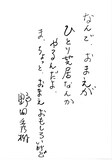 なんで、おまえが
ひとり芝居なんか
やるんだよ。
ま、ちょっと おまえ おもしろい
野田秀樹